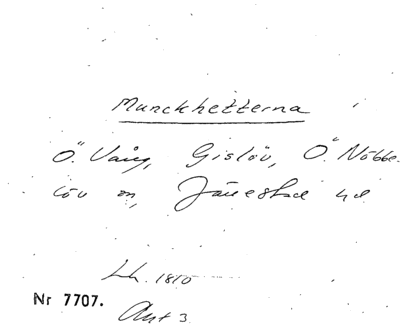 Munckhetterna
Ö. Vång, Gislöv, Ö. Nöbbe-
löv sn, Järrestad hd
Lh. 1810
Nr 7707.
Avt 3